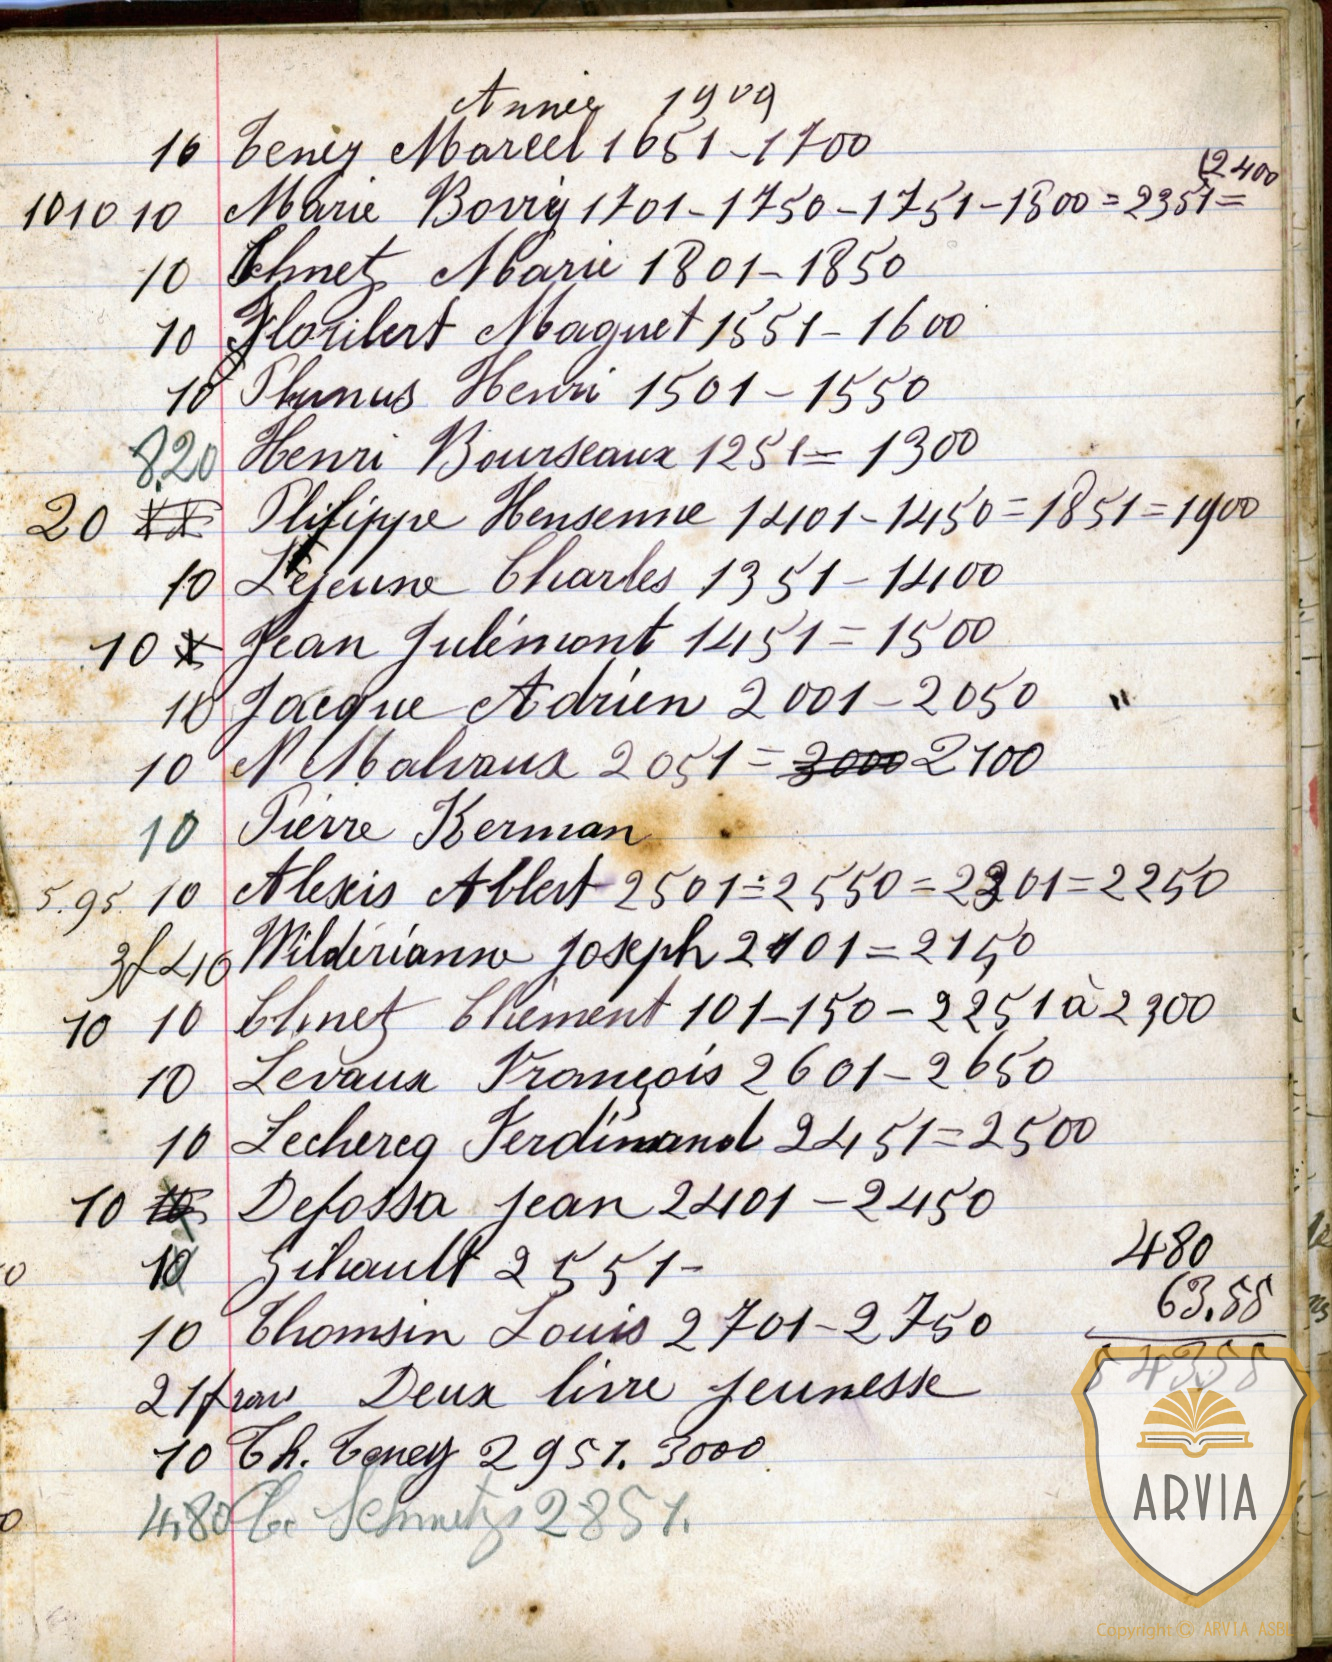 Année 1909
10 Teney Marcel 1651-1700
(2400
10 10 10 Marie Bovy 1701-1750-1751-1800=2351=
10 Chnetz Marie 1801-1850
10 Floribert Maguet 1551-1600
10 Thunus Henri 1501-1550
8.20 Henri Bourseaux 1251=1300
20 Philippe Hensenne 1401-1450=1851=1900
10 Lejeune Charles 1351-1400
10 Jean Julémont 1451=1500
10 Jacque Adrien 2001-2050 "
10 N Malvaux 2051= 3000 2100
10 Pierre Kerman
5.95 10 Alexis Albert 2501=2550=2201=2250
3f 40 Wildérianne Joseph 2101=2150
10 10 Chnetz Clément 101-150-2251 à 2300
10 Levaux François 2601-2650
10 Lechercq Ferdinand 2451=2500
10 10 Defossa Jean 2401-2450
10 Gihault 2551-
480
63.55
10 Thomsin Louis 2701-2750
54355
21 Deux livre jeunesse
10 Th. Teney 2951. 3000
4.80 Schmetz 2851.
ARVIA
Copyright © ARVIA ASB